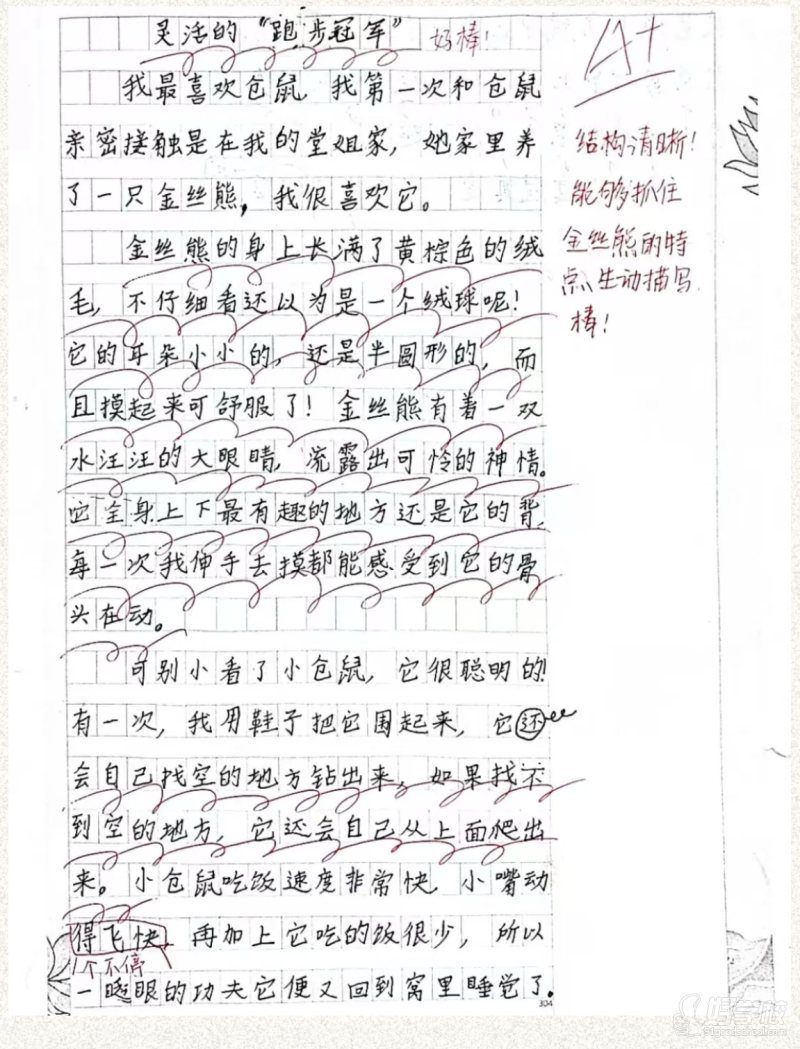 灵活的“跑步冠军”
好棒！
A+
我最喜欢仓鼠，我第一次和仓鼠
亲密接触是在我的堂姐家，她家里养
了一只金丝熊，我很喜欢它。
金丝熊的身上长满了黄棕色的绒
毛，不仔细看还以为是一个绒球呢！
它的耳朵小小的，还是半圆形的，而
且摸起来可舒服了！金丝熊有着一双
水汪汪的大眼睛，流露出可怜的神情。
它全身上下最有趣的地方还是它的背，
每一次我伸手去摸都能感受到它的骨
头在动。
可别小看了小仓鼠，它很聪明的！
有一次，我用鞋子把它围起来，它还
会自己找空的地方钻出来，如果找不
到空的地方，它还会自己从上面爬出
来。小仓鼠吃饭速度非常快，小嘴动
得飞快，再加上它吃的饭很少，所以
个不停
一眨眼的功夫它便又回到窝里睡觉了。
304
结构清晰！
能够抓住
金丝熊的特
点，生动描写，
棒！